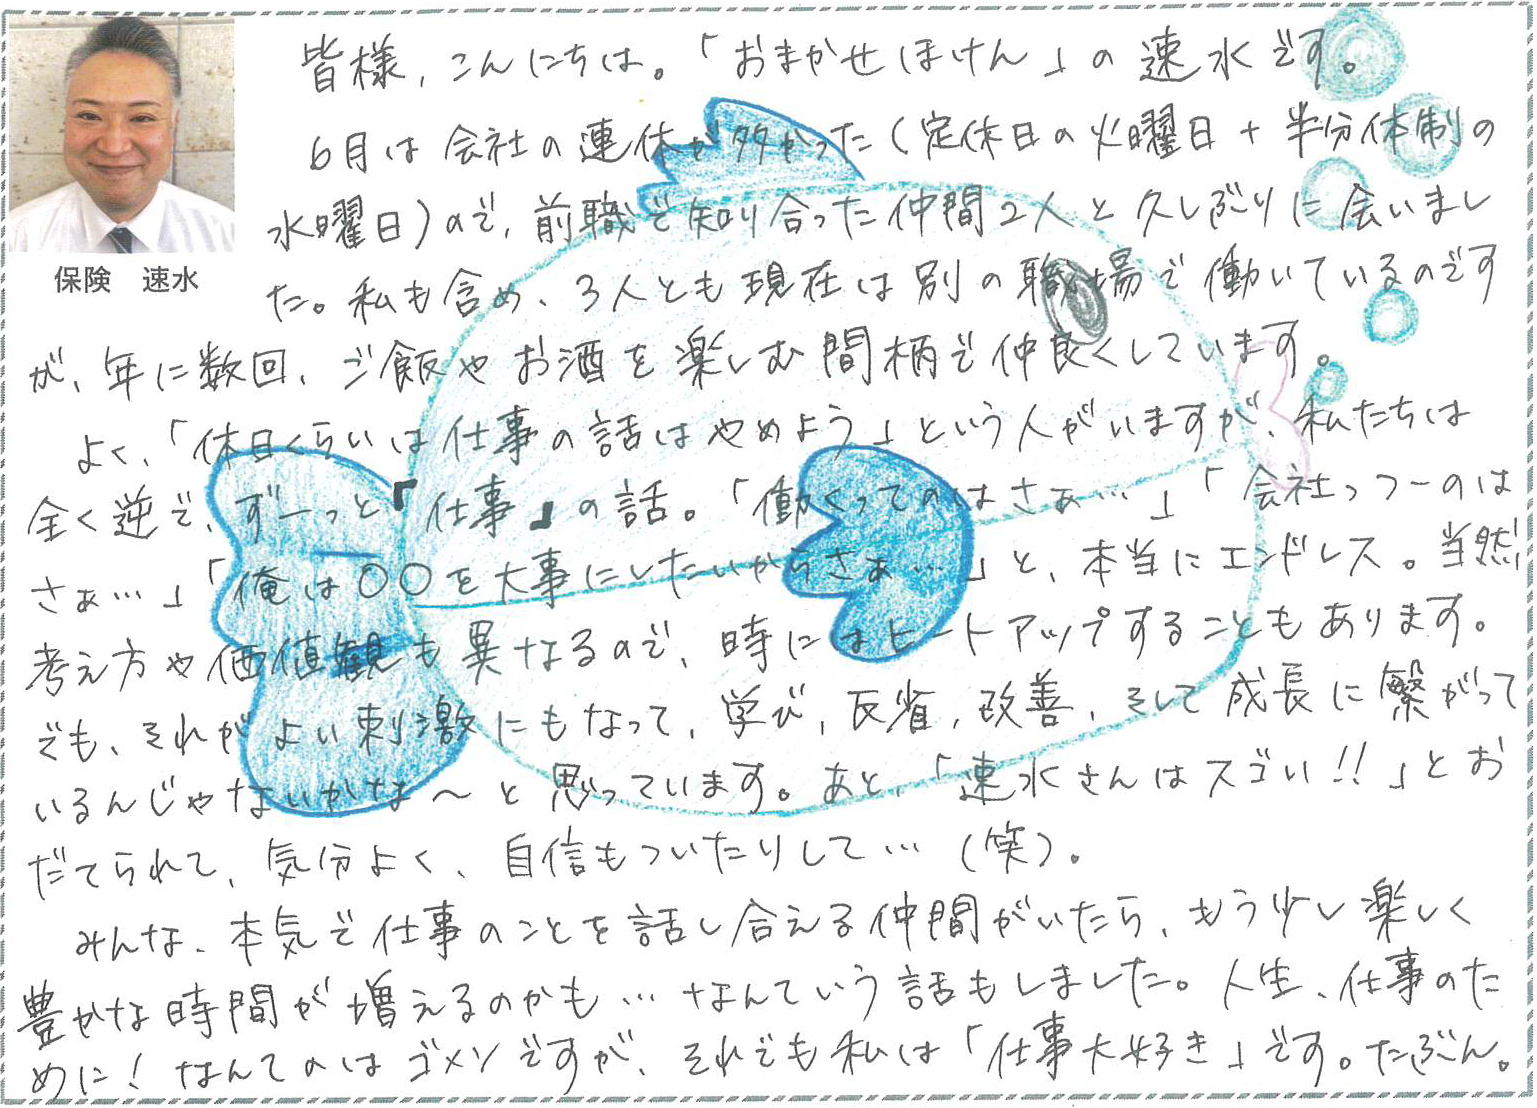 皆様、こんにちは。「おまかせほけん」の速水です。
6月は会社の連休が多かった(定休日の火曜日+半分体制の
水曜日)ので、前職で知り合った仲間2人と久しぶりに会いまし
た。私も含め、3人とも現在は別の職場で働いているのです
保険 速水
が、年に数回、ご飯やお酒を楽しむ間柄で仲良くしています。
よく、「休日くらいは仕事の話はやめよう」という人がいますが、私たちは
全く逆で、ずーっと『仕事』の話。「働くってのはさぁ…」「会社っつーのは
さぁ…」「俺は〇〇を大事にしたいからさぁ…」と、本当にエンドレス。当然
考え方や価値観も異なるので、時にはヒートアップすることもあります。
でも、それがよい刺激にもなって、学び、反省、改善、そして成長に繋がって
いるんじゃないかな〜と思っています。あと、「速水さんはスゴい!!」とお
だてられて、気分よく、自信もついたりして…(笑)。
みんな、本気で仕事のことを話し合える仲間がいたら、もう少し楽しく
豊かな時間が増えるのかも…なんていう話もしました。人生、仕事のた
めに!なんてのはゴメンですが、それでも私は「仕事大好き」です。たぶん。